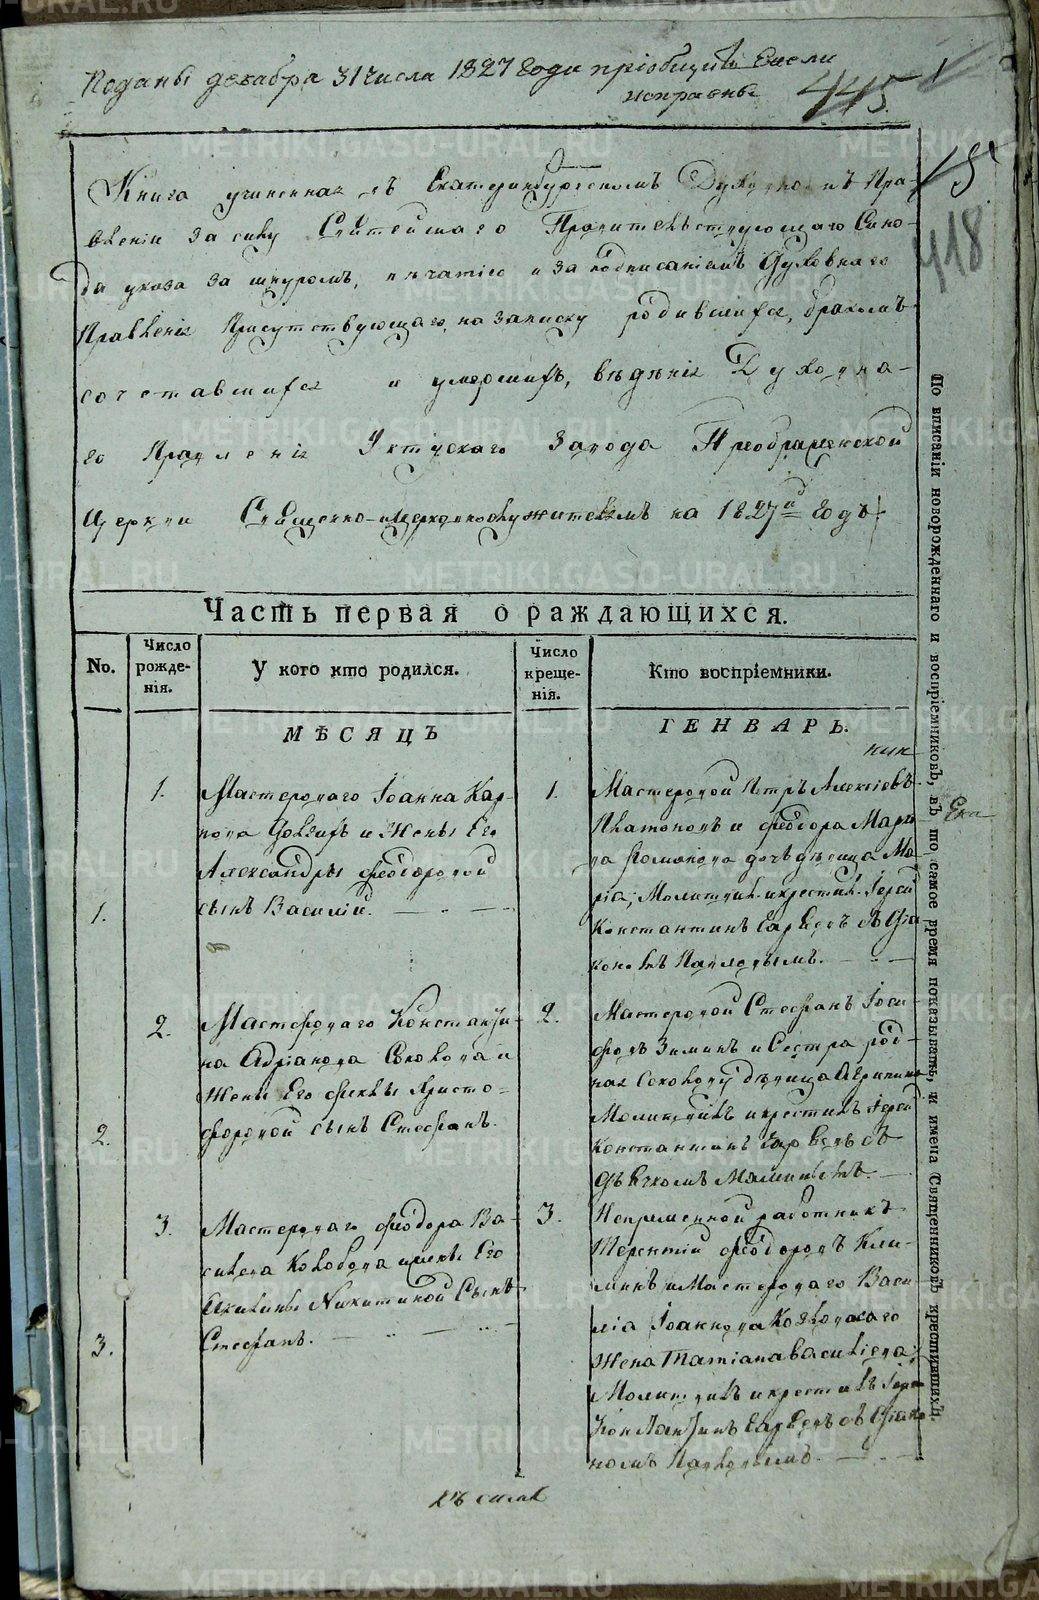 Поданы декабря 31 числа 1827 года пріобщить Ежели
исправны 445.
Книга учиненная въ Екатеринбургскомъ Духовномъ Пра-
вленіи за силу Святейшаго Правительствующаго Сино-
да указа за шнуромъ, печатью и за подписаніемъ Духовнаго
Правленія Присутствующаго, на записку родившихся, бракомъ
сочетавшихся и умершихъ, вѣдѣнія Духовна-
го Правленія Уктускаго Завода Преображенской
Церкви Священно-церковнослужителемъ на 1827й годъ
418
Часть первая о раждающихся.
No.
Число рожде-нія.
У кого кто родился.
Число креще-нія.
Кто воспріемники.
МѢСЯЦЪ
ГЕНВАРЬ.
1.
1.
Мастероваго Іоанна Кар-
пова и Жены Его
Александры Феодоровой
сынъ Василій.
1.
Мастеровой Петръ Алексіевъ
Платоновъ и Феодора
Романова дочь дѣвица Ма-
рія; Молитвил. и крестил. Іерей
Константинъ съ Діа-
кономъ Павловымъ.
2.
2.
Мастероваго Константи-
на Адріанова Соколова и
Жены Его Феклы Христо-
форовой сынъ Стефанъ.
2.
Мастеровой Стефанъ Іоси-
фовъ Зиминъ и Сестра род-
ная Соколову дѣвица Агрипина
Молитвилъ и крестилъ Іерей
Константинъ съ
Дьячкомъ
3.
3.
Мастероваго Феодора Ва-
сильева Колобова и жены Его
Акилины Никитиной Сынъ
Стефанъ.
3.
Непременной работникъ
Терентій Феодоровъ
и Мастероваго Васи-
лія Іоаннова
жена Татіана Васильева;
Молитвилъ и крестилъ Іерей
Константинъ съ Діако-
номъ Павловымъ.
По вписаніи новорожденнаго и воспріемниковъ, въ то самое время показывать, и имена Священниковъ крестившихъ.
METRIKI.GASO-URAL.RU